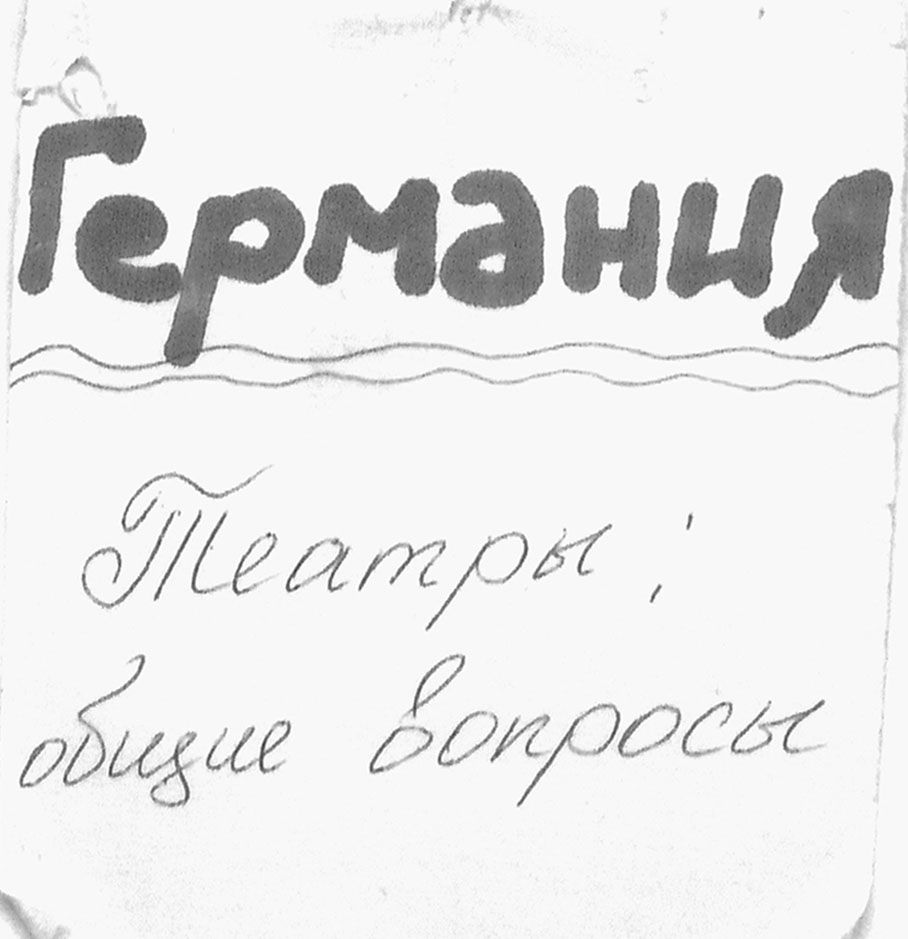 Германия
Театры:
общие вопросы